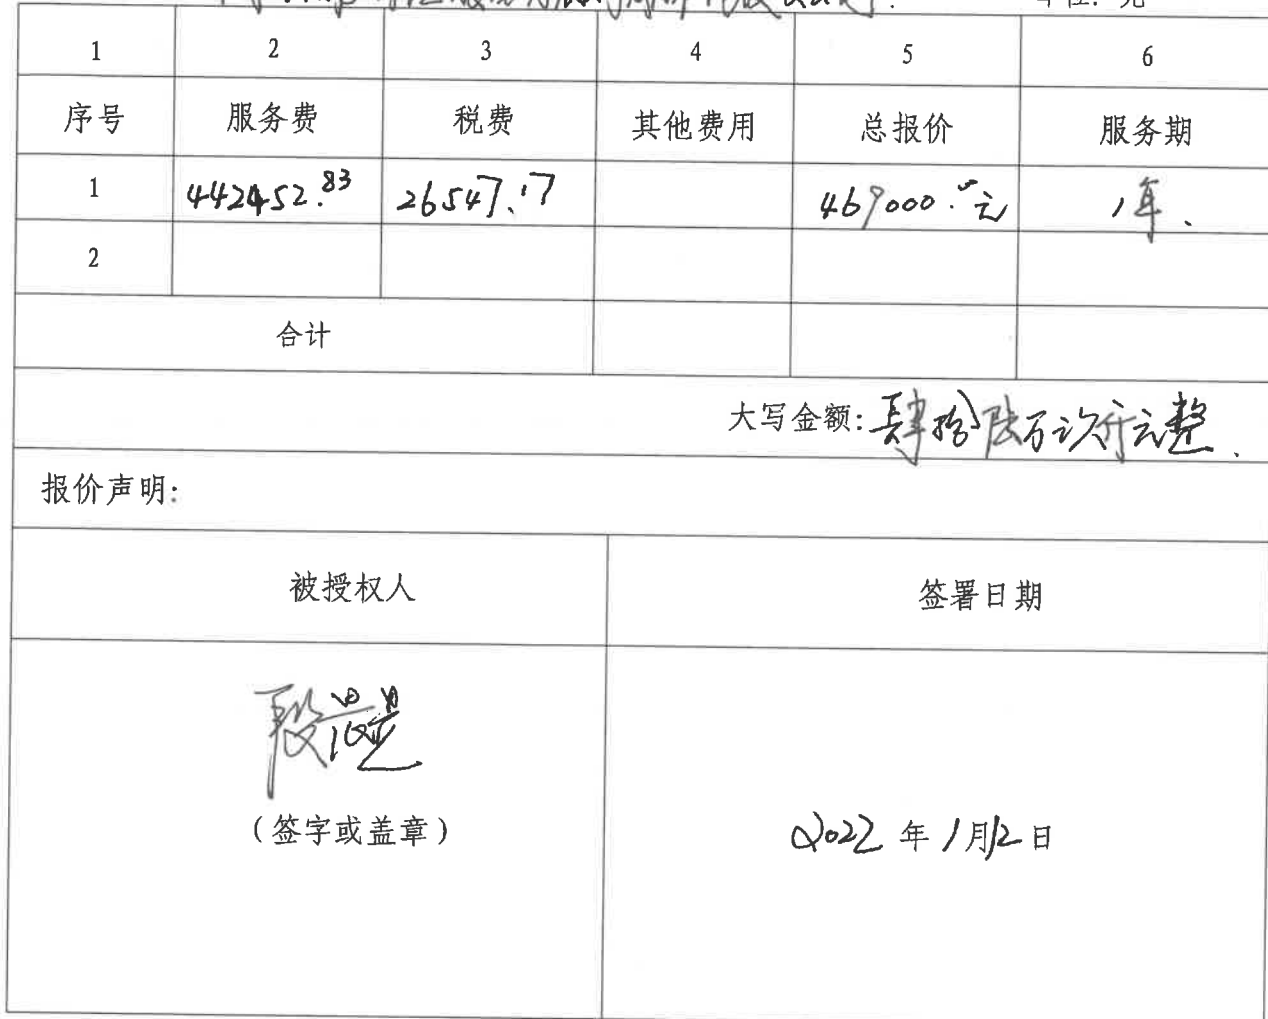 单位：元
1 2 3 4 5 6
序号 服务费 税费 其他费用 总报价 服务期
1 442452.83 26547.17 469000.元 1年.
2
合计
大写金额：肆拾陆万玖仟元整.
报价声明：
被授权人 签署日期
（签字或盖章） 2022 年 1 月 12 日